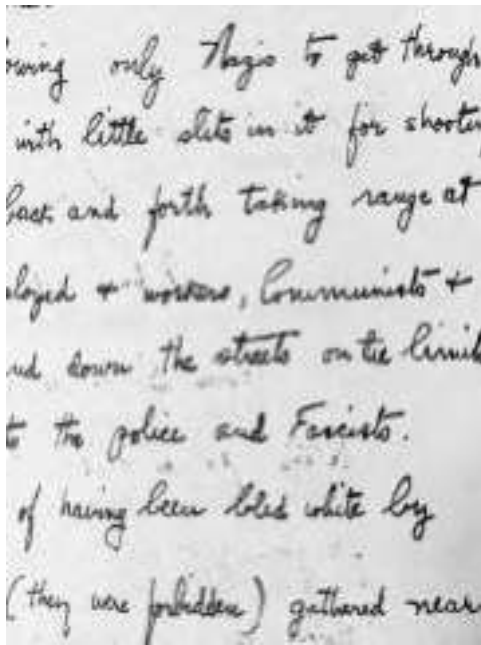 owing only Nazis to get through
with little slits in it for shootin
back and forth taking range at
ployed + workers, Communists +
nd down the streets on the limit
to the police and Fascists.
of having been bled white by
(they were forbidden) gathered near